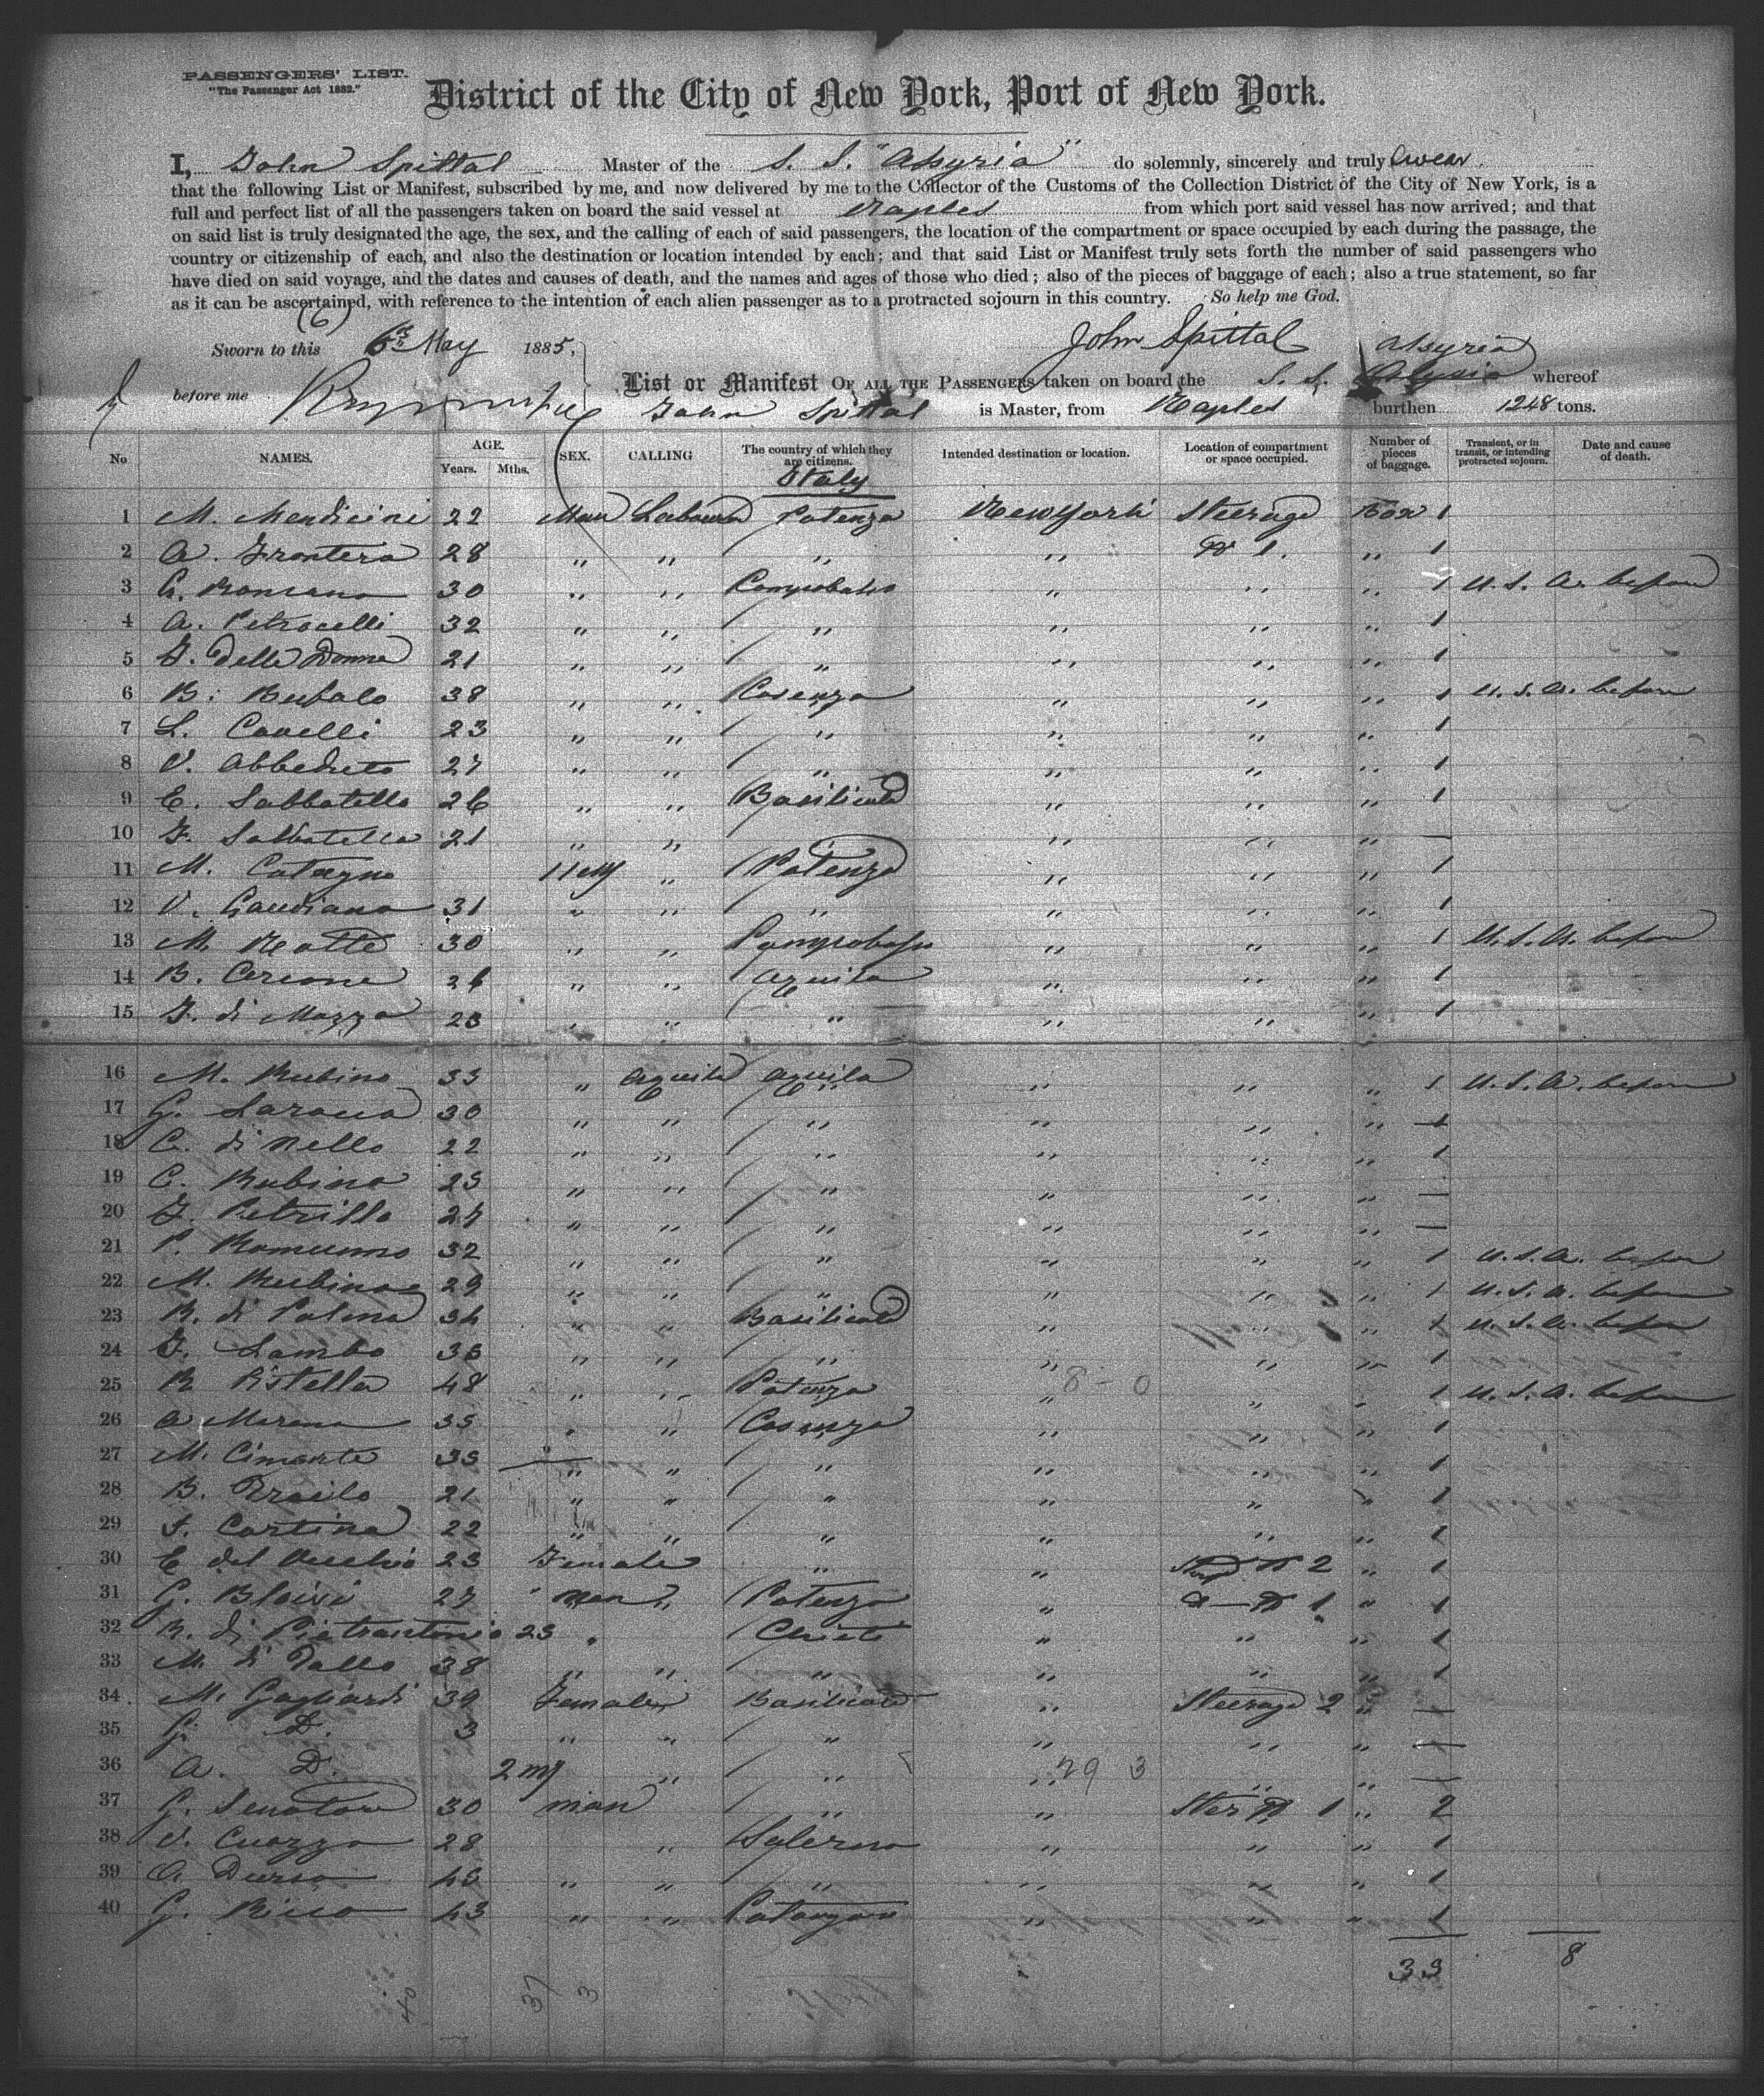 PASSENGERS' LIST.
"The Passenger Act 1882."
District of the City of New York, Port of New York.
I, John Spittal Master of the S. S. "Assyria" do solemnly, sincerely and truly swear
that the following List or Manifest, subscribed by me, and now delivered by me to the Collector of the Customs of the Collection District of the City of New York, is a
full and perfect list of all the passengers taken on board the said vessel at Naples from which port said vessel has now arrived; and that
on said list is truly designated the age, the sex, and the calling of each of said passengers, the location of the compartment or space occupied by each during the passage, the
country or citizenship of each, and also the destination or location intended by each; and that said List or Manifest truly sets forth the number of said passengers who
have died on said voyage, and the dates and causes of death, and the names and ages of those who died; also of the pieces of baggage of each; also a true statement, so far
as it can be ascertained, with reference to the intention of each alien passenger as to a protracted sojourn in this country. So help me God.
(6)
Sworn to this 6th May 1885, John Spittal Assyria
before me
List or Manifest OF ALL THE PASSENGERS taken on board the S. S. whereof
John Spittal is Master, from Naples burthen 1248 tons.
No NAMES. AGE. Years. Mths. SEX. CALLING The country of which they are citizens. Intended destination or location. Location of compartment or space occupied. Number of pieces of baggage. Transient, or in transit, or intending protracted sojourn. Date and cause of death.
Italy
1 M. Mendicini 22 Man Labourer Potenza New York Steerage Box 1
2 A. Frontera 28 " " " " 1. " 1
3 G. Romano 30 " " " " " 1 U. S. A. before
4 A. Petrocelli 32 " " " " " " 1
5 F. delle Donne 21 " " " " " " 1
6 B. Bufalo 38 " " Cosenza " " " 1 U. S. A. before
7 L. Cavelli 23 " " " " " " 1
8 V. Abbedeto 27 " " " " " " 1
9 E. Sabbatello 26 " " Basilicata " " " 1
10 F. Sabbatella 21 " " " " " —
11 M. " Potenza " " " 1
12 V. Gaudiano 31 " " " " " " 1
13 M. 30 " " " " " 1 U. S. A. before
14 B. Cerione 26 " " Aquila " " " 1
15 F. di Mazza 23 " " " " " 1
16 M. Rubino 33 " Aquila Aquila " " " 1 U. S. A. before
17 G. 30 " " " " " " 1
18 C. di Nello 22 " " " " " " 1
19 C. Rubino 23 " " " " " " —
20 F. Petrillo 24 " " " " " " —
21 P. 32 " " " " " " 1 U. S. A. before
22 M. Rubino 29 " " " " " " 1 U. S. A. before
23 R. di Palma 34 " " Basilicata " " " 1 U. S. A. before
24 F. Sambo 38 " " " " " " 1
25 R Pistella 48 " " Potenza " 8 - 0 " 1 U. S. A. before
26 A Morena 35 " " Cosenza " " " 1
27 M. Cimante 35 " " " " " " 1
28 B. 21 " " " " " " 1
29 F. Cortina 22 " " " " " " 1
30 E del Vecchio 23 Female " " 2 " 1
31 G. Blaisi 27 men " Potenza " 1 " 1
32 R. di Pietrantonio 23 " Chieti " " " 1
33 M. di 38 " " " " " " 1
34 M. Gagliardi 39 Female Basilicata " Steerage 2 " —
35 G. D. 3 " " " " " " —
36 A. D. 2 m " " " 29 3 " " —
37 G. Senatore 30 man " " 1 " 2
38 V. Cuozzo 28 " Salerno " " " 1
39 A Durso 43 " " " " " " 1
40 G. Ricco 43 " " " " " 1
33 8
40 37 3